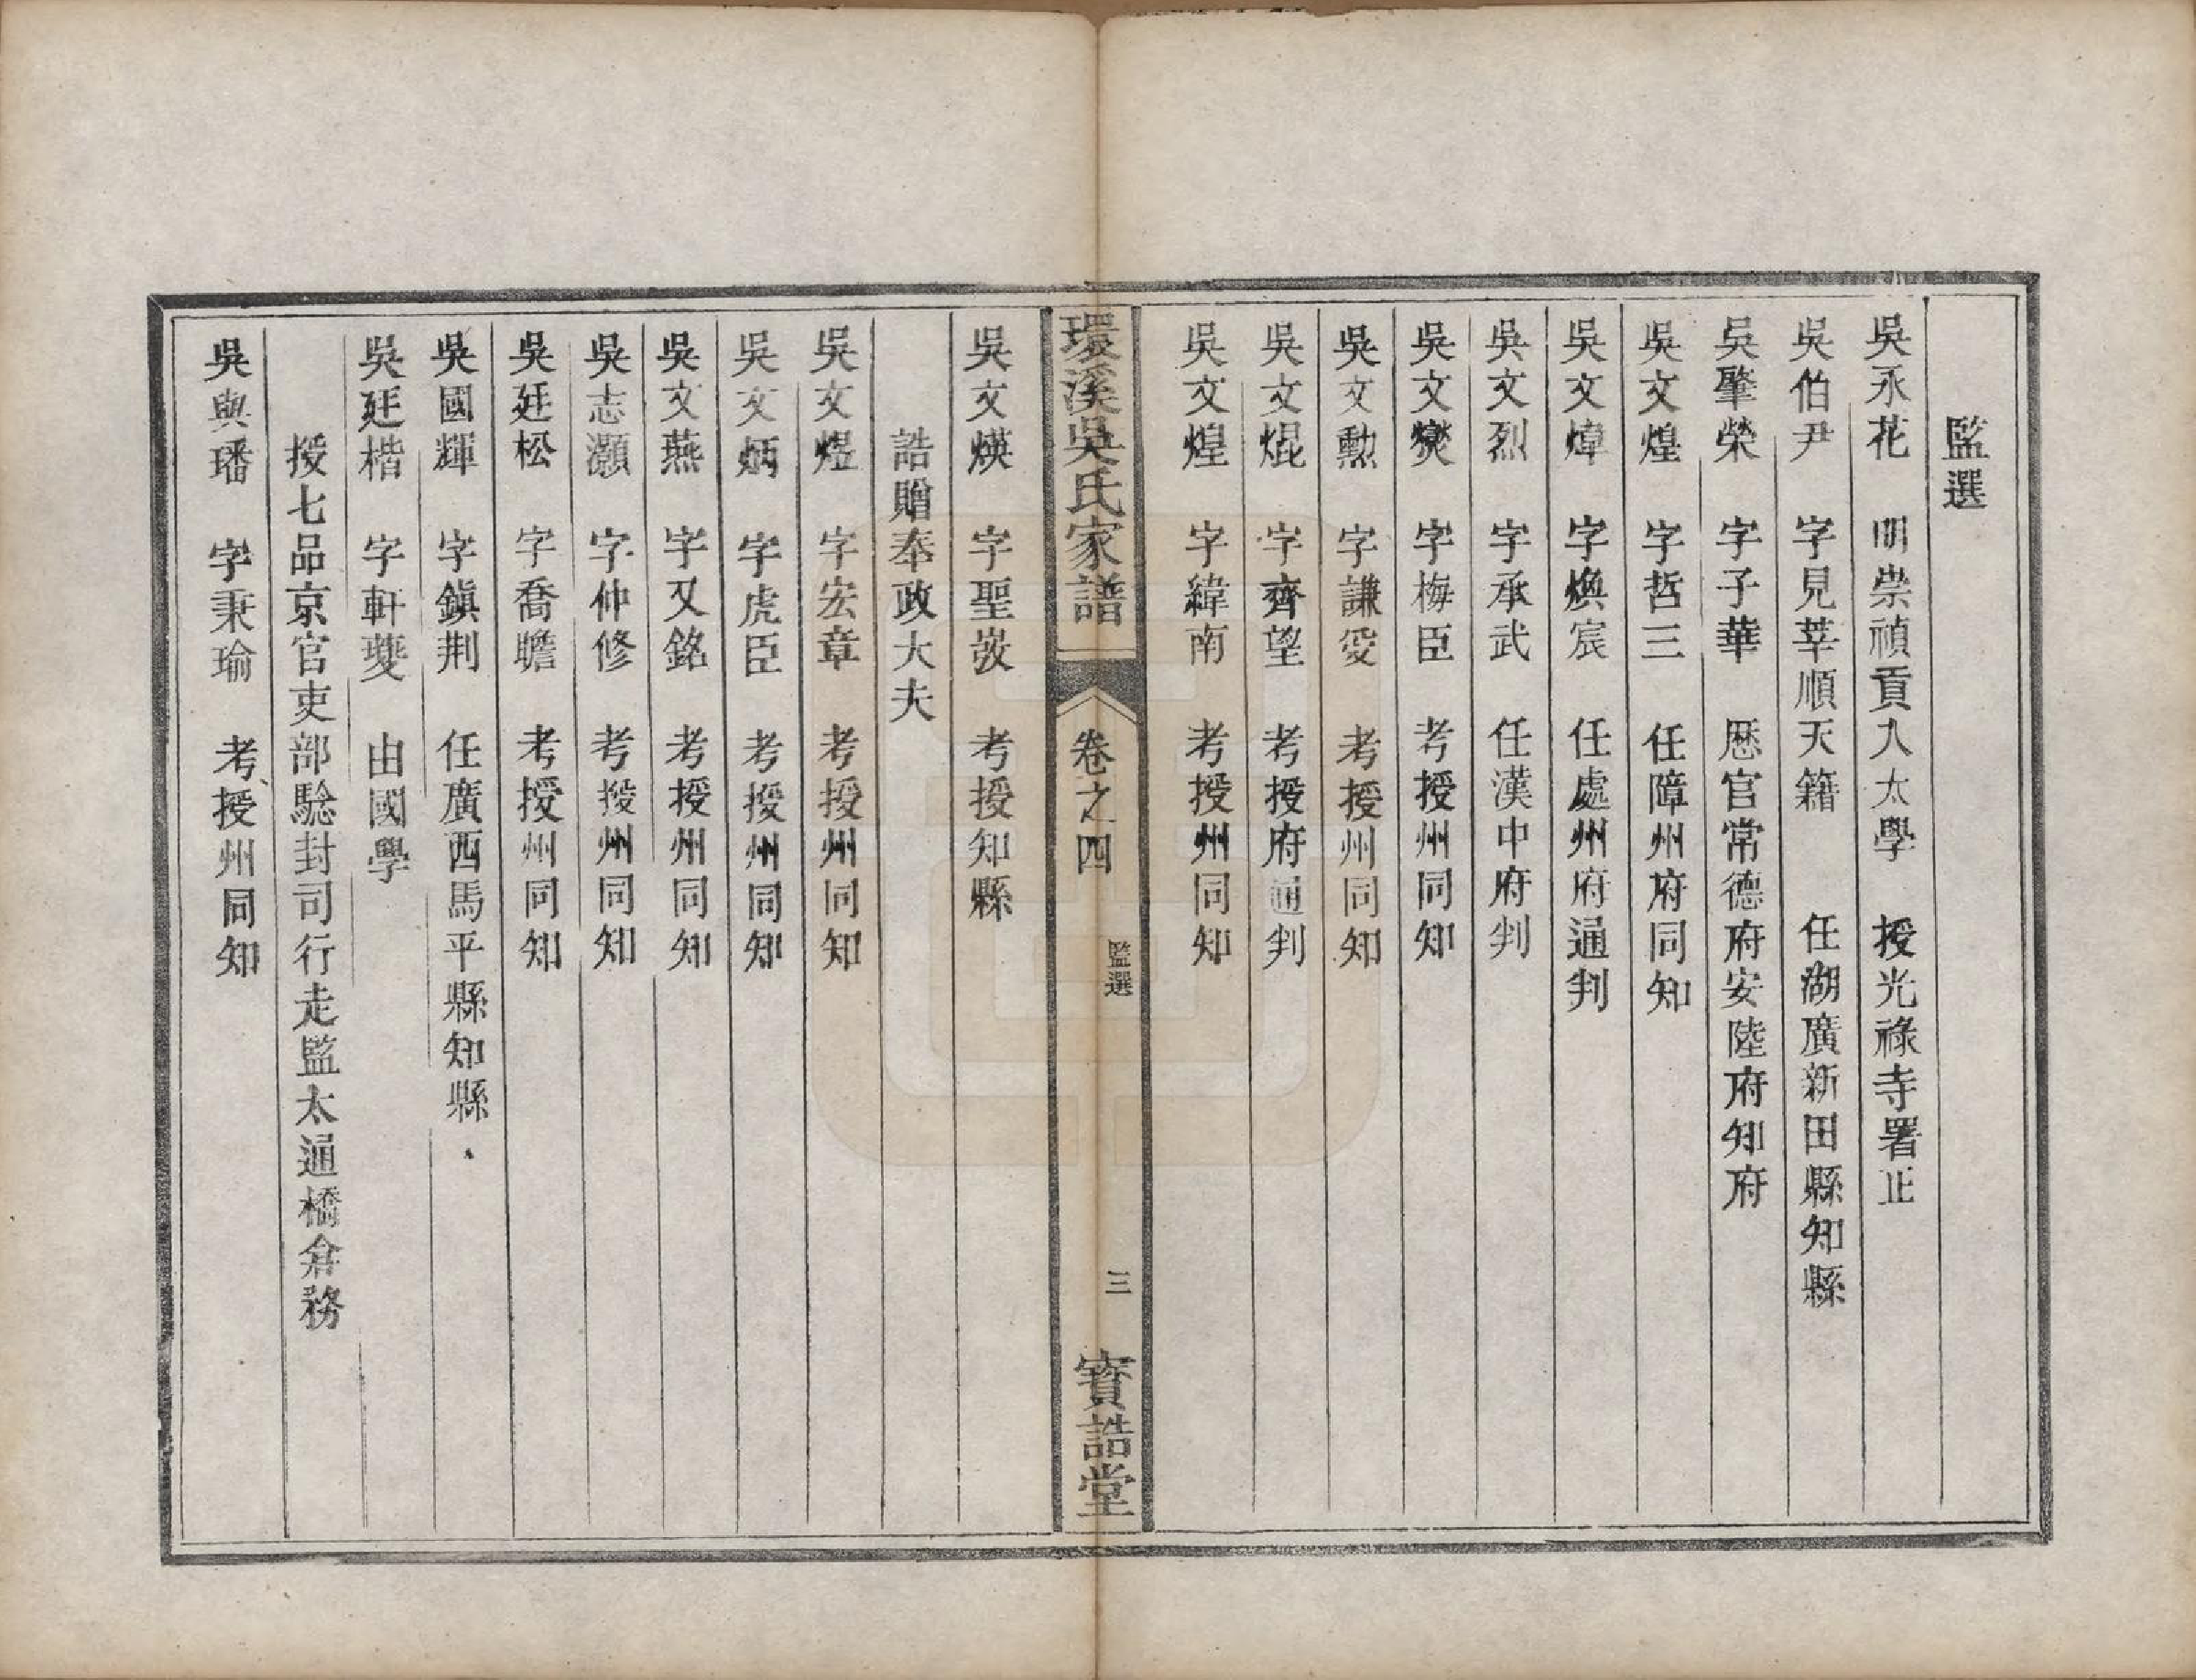 監選
吳永花 明崇禎貢入太學 授光祿寺署正
吳伯尹 字見莘順天籍 任湖廣新田縣知縣
吳肇榮 字子華 歷官常德府安陸府知府
吳文煌 字哲三 任障州府同知
吳文煒 字煥宸 任處州府通判
吳文烈 字承武 任漢中府判
吳文爕 字梅臣 考授州同知
吳文勲 字謙受 考授州同知
吳文焜 字齊望 考授府通判
吳文煌 字緯南 考授州同知
環溪吳氏家譜 卷之四 監選 三 寳誥堂
吳文煐 字聖敳 考授知縣
誥贈奉政大夫
吳文煜 字宏章 考授州同知
吳文炳 字虎臣 考授州同知
吳文燕 字又銘 考授州同知
吳志灝 字仲修 考授州同知
吳廷松 字喬瞻 考授州同知
吳國輝 字鎮荆 任廣西馬平縣知縣
吳廷楷 字軒夔 由國學
授七品京官吏部騐封司行走監太通橋倉務
吳與璠 字秉瑜 考授州同知